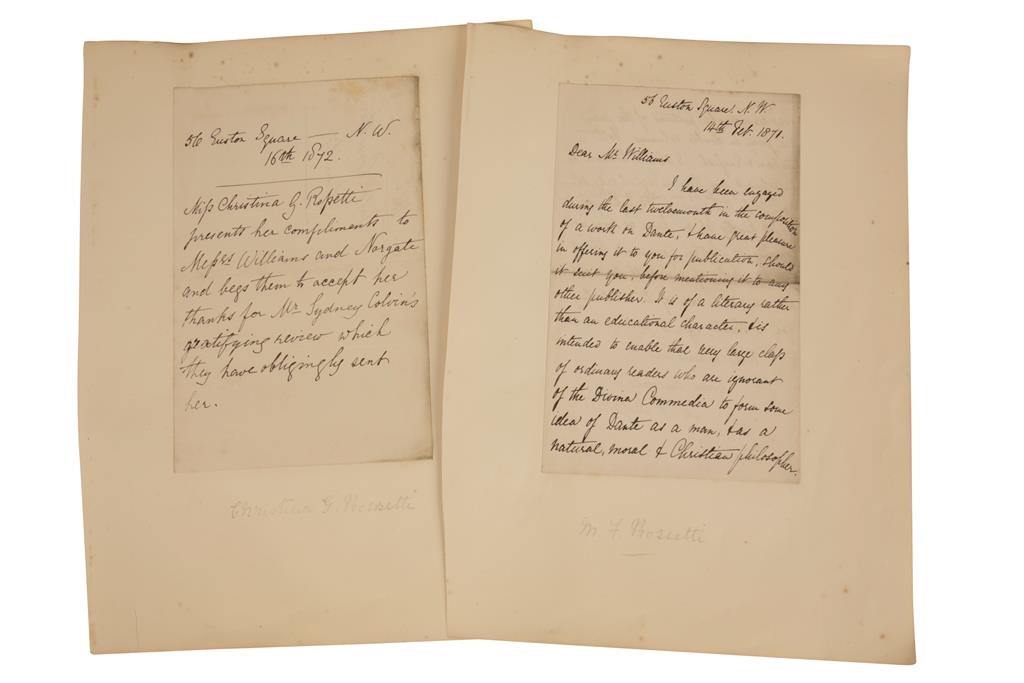 56 Euston Square — N. W.
16th 1872.
Miss Christina G. Rossetti
presents her compliments to
Messrs Williams and Norgate
and begs them to accept her
thanks for Mr. Sydney Colvin's
gratifying review which
they have obligingly sent
her.
Christina G. Rossetti
56 Euston Square. N. W.
14th Feb. 1871.
Dear Mr. Williams
I have been engaged
during the last twelvemonth in the composition
of a work on Dante, & have great pleasure
in offering it to you for publication, should
it suit you, before mentioning it to any
other publisher. It is of a literary rather
than an educational character, & is
intended to enable that very large class
of ordinary readers who are ignorant
of the Divina Commedia to form some
idea of Dante as a man, & as a
natural, moral & Christian philosopher.
M F Rossetti